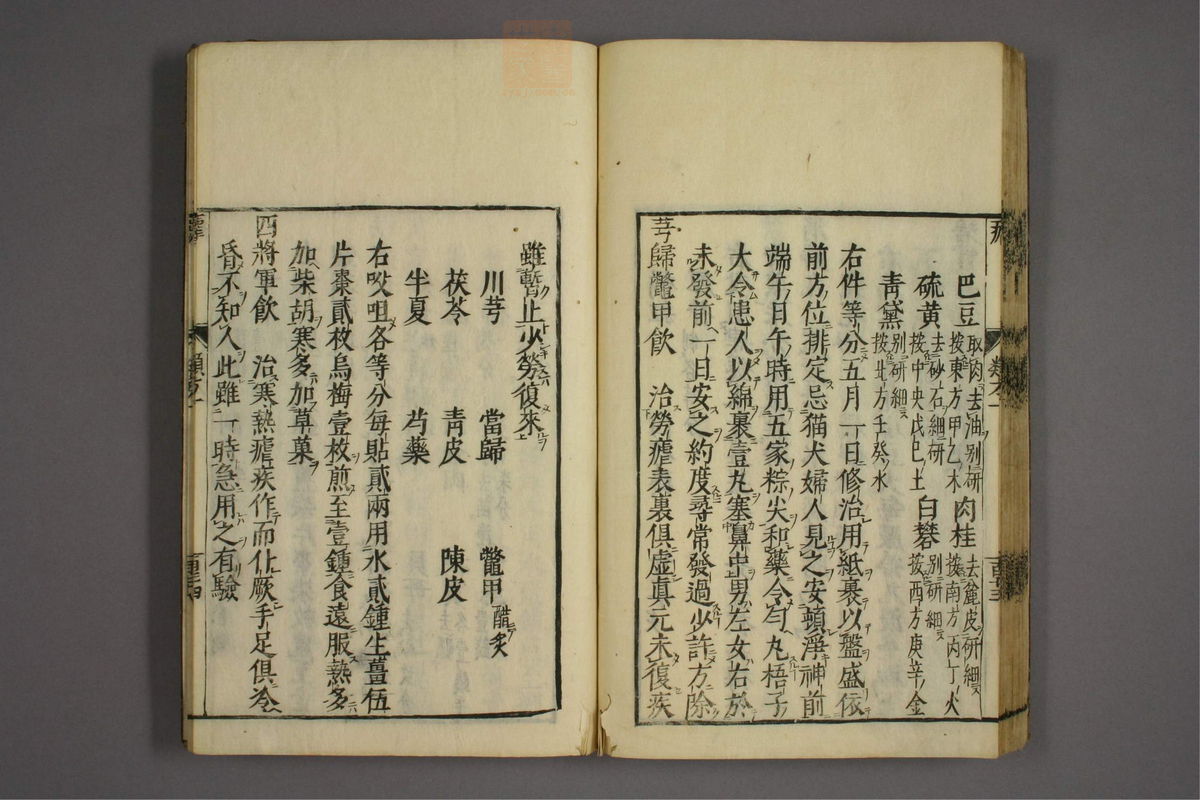 巴豆 取肉去油別研 按東方甲乙木 肉桂 去麄皮研細 按南方丙丁火
硫黄 去砂石細研 按中央戊巳土 白礬 別研細 按西方庚辛金
青黛 別研細 按北方壬癸水
右件等分五月一日修治用紙裹以盤盛依
前方位排定忌猫犬婦人見之安頓淨神前
端午日午時用五家粽尖和藥令勻丸梧子
大令患人以綿裹壹丸塞鼻中男左女右於
未發前一日安之約度尋常發過少許方除
芎歸鼈甲飲 治勞瘧表裏俱虚真元未復疾
雖暫止少勞復來
川芎 當歸 鼈甲 醋炙
茯苓 青皮 陳皮
半夏 芍藥
右㕮咀各等分每貼貳兩用水貳鍾生薑伍
片棗貳枚烏梅壹枚煎至壹鍾食遠服熱多
加柴胡寒多加草菓
四將軍飲 治寒熱瘧疾作而仆厥手足俱冷
昏不知人此雖一時急用之有驗